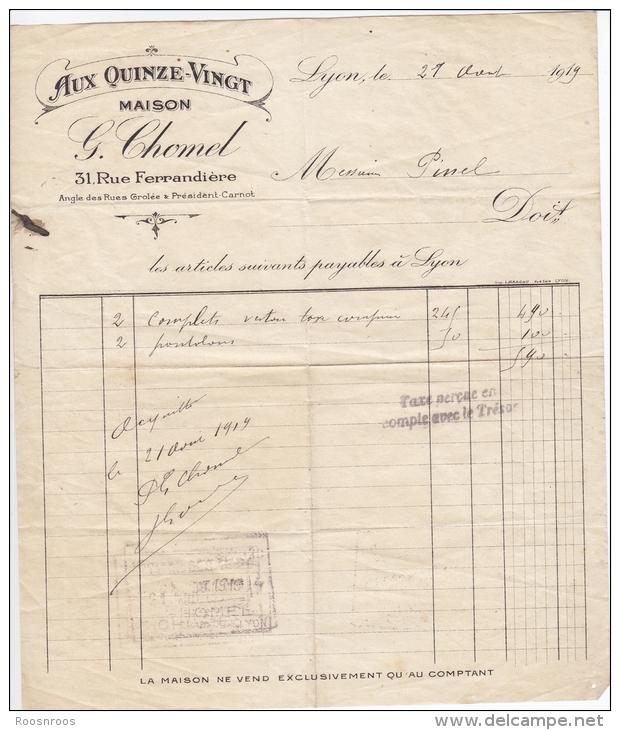 AUX QUINZE-VINGT
MAISON
G. Chomel
31, Rue Ferrandière
Angle des Rues Grolée & Président-Carnot
Lyon, le 1919
Pinel
Doit
les articles suivants payables à Lyon
2 Complets veston taxe comprise 245 490
2 pantalons 50 100
590
Taxe perçue en
compte avec le Trésor
Acquitté
le 21 1919
Chomel
1919
LYON
LA MAISON NE VEND EXCLUSIVEMENT QU'AU COMPTANT
Roosnroos
www.delcampe.net